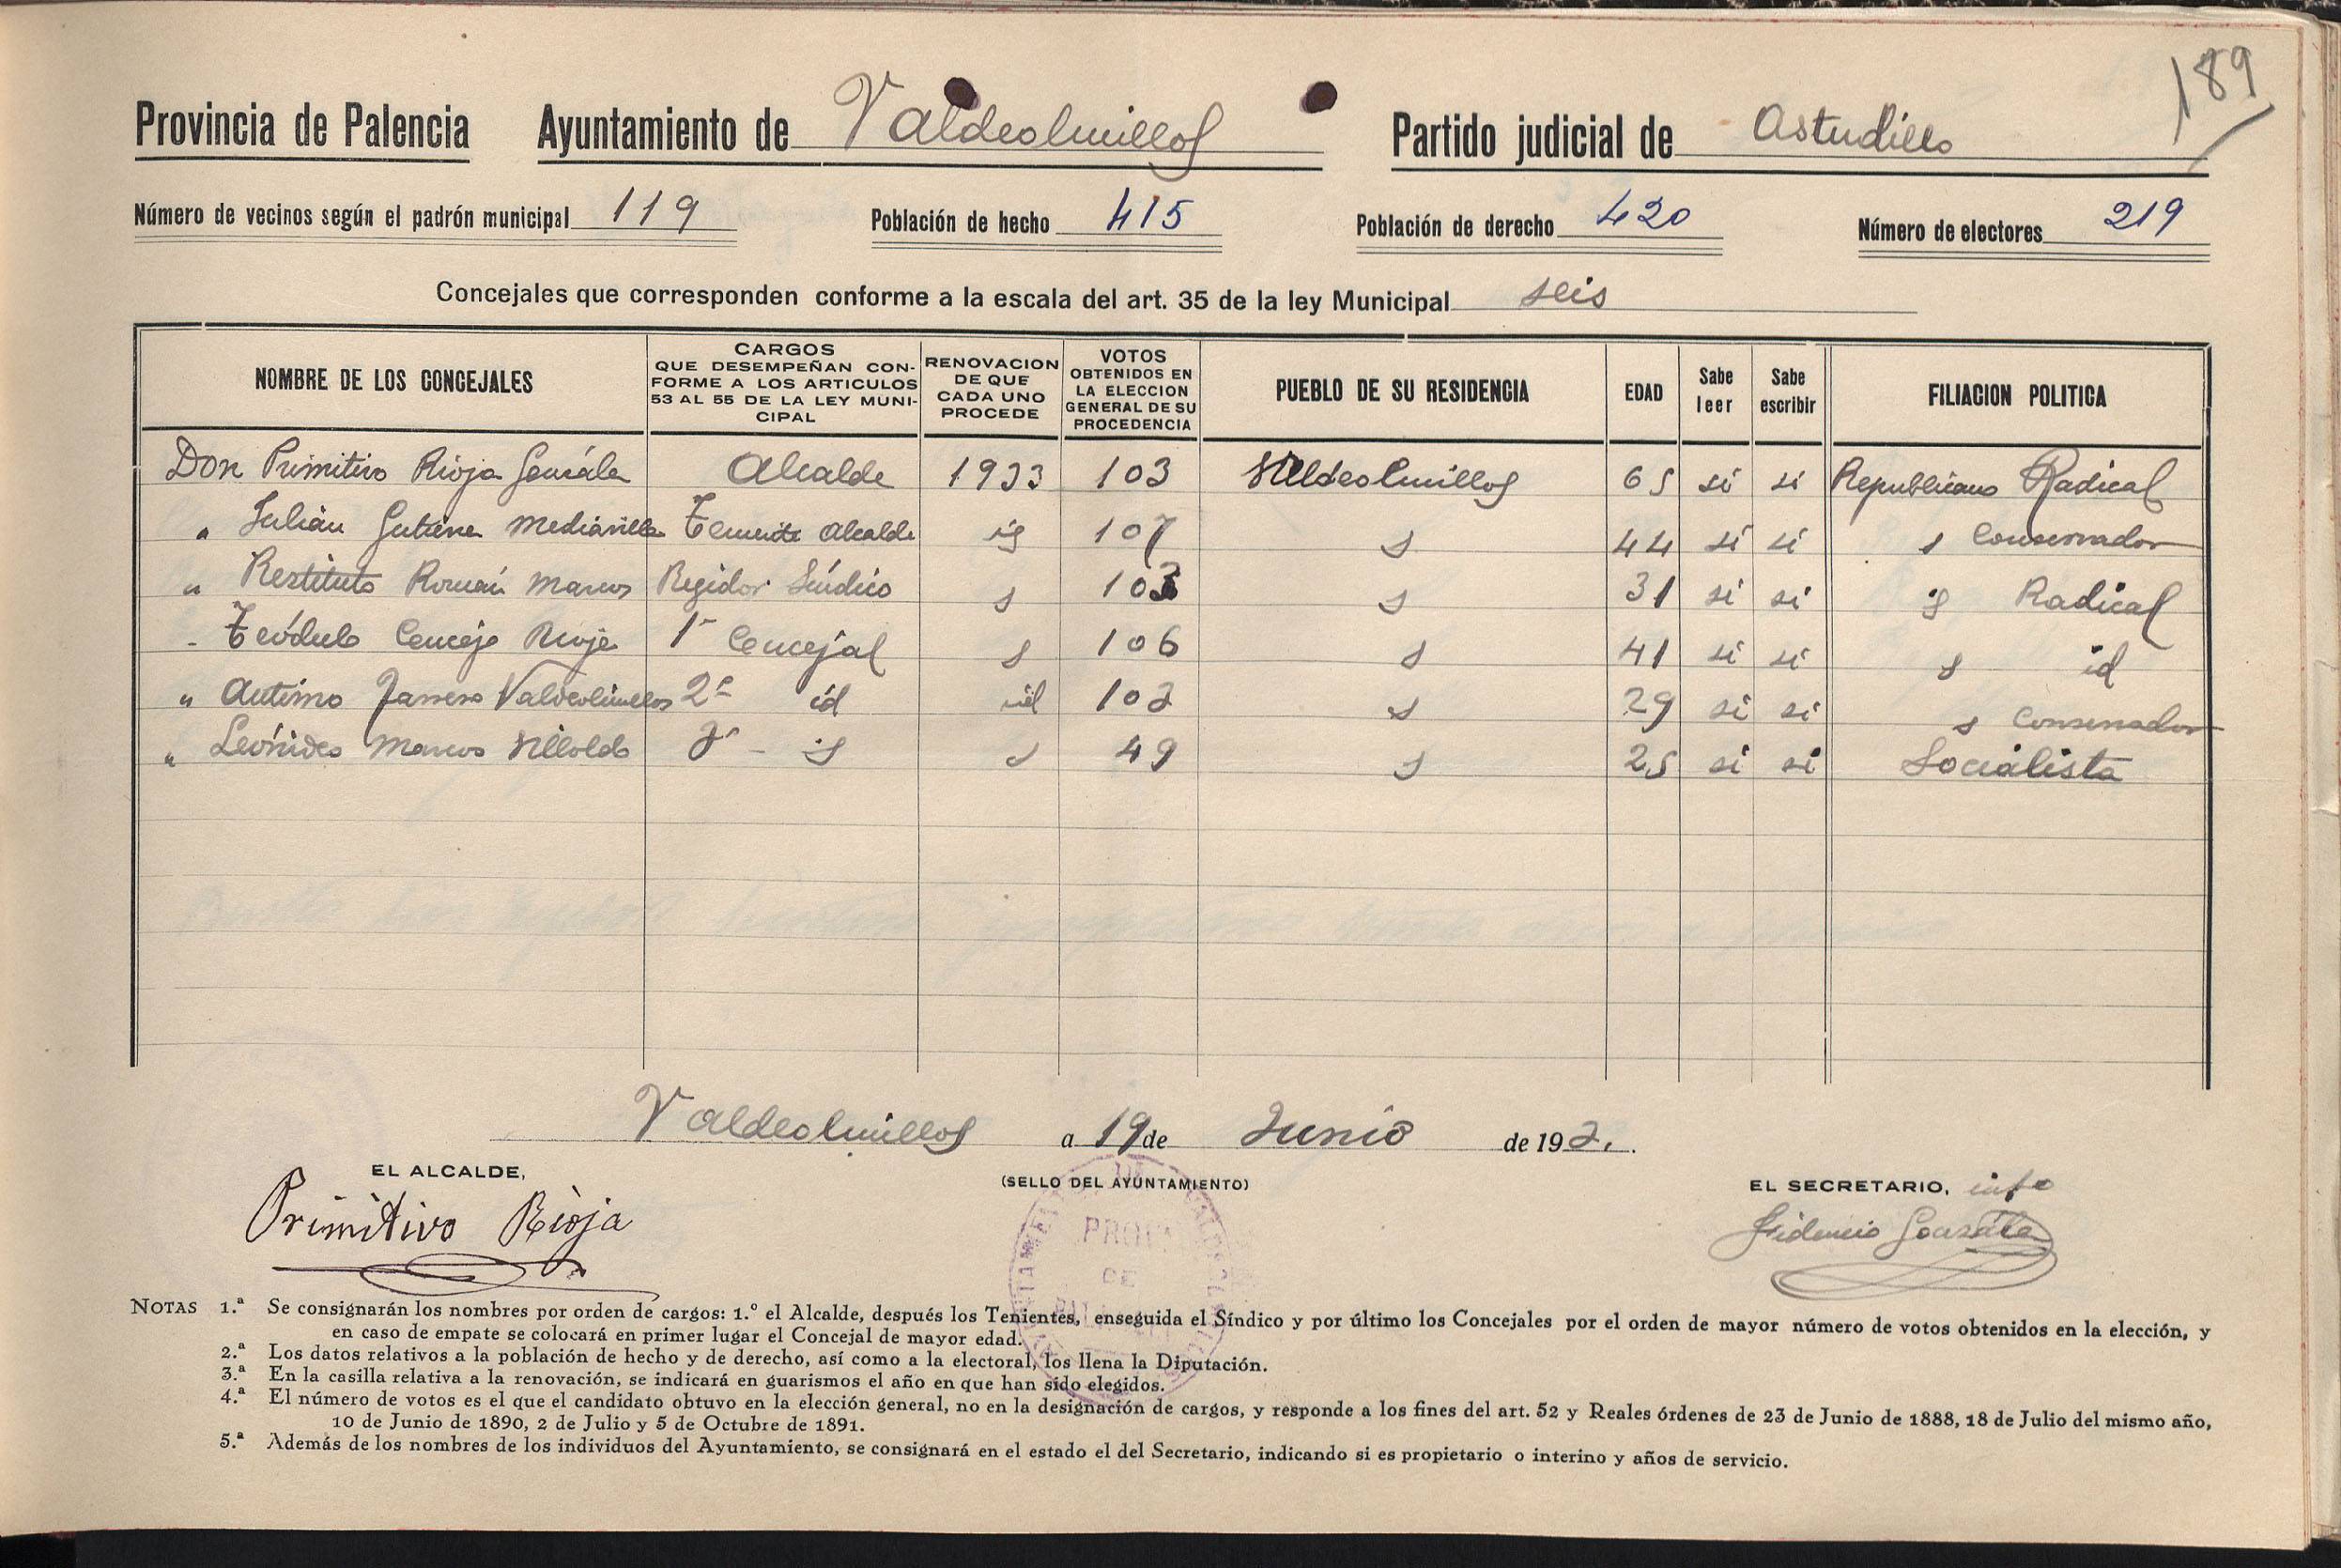 189
Provincia de Palencia Ayuntamiento de Valdeolmillos Partido judicial de Astudillo
Número de vecinos según el padrón municipal 119 Población de hecho 415 Población de derecho 420 Número de electores 219
Concejales que corresponden conforme a la escala del art. 35 de la ley Municipal seis
NOMBRE DE LOS CONCEJALES
CARGOS
QUE DESEMPEÑAN CON-
FORME A LOS ARTICULOS
53 AL 55 DE LA LEY MUNI-
CIPAL
RENOVACION
DE QUE
CADA UNO
PROCEDE
VOTOS
OBTENIDOS EN
LA ELECCION
GENERAL DE SU
PROCEDENCIA
PUEBLO DE SU RESIDENCIA
EDAD
Sabe
leer
Sabe
escribir
FILIACION POLITICA
Don Primitivo Rioja González Alcalde 1933 103 Valdeolmillos 65 si si Republicano Radical
" Julián Gutierrez Mediavilla Teniente Alcalde id 107 " 44 si si " Conservador
" Restituto Román Marcos Regidor Síndico " 103 " 31 si si " Radical
" Teódulo Concejo Rioja 1º Concejal " 106 " 41 si si " id
" Antimo Valdeolmillos 2º id id 102 " 29 si si " Conservador
" Leónides Marcos Villoldo 3º id " 49 " 25 si si Socialista
Valdeolmillos a 19 de Junio de 193.
EL ALCALDE,
(SELLO DEL AYUNTAMIENTO)
EL SECRETARIO,
Primitivo Rioja
Fidencio González
PROV.
DE
NOTAS 1.ª Se consignarán los nombres por orden de cargos: 1.º el Alcalde, después los Tenientes, enseguida el Síndico y por último los Concejales por el orden de mayor número de votos obtenidos en la elección, y
en caso de empate se colocará en primer lugar el Concejal de mayor edad.
2.ª Los datos relativos a la población de hecho y de derecho, así como a la electoral, los llena la Diputación.
3.ª En la casilla relativa a la renovación, se indicará en guarismos el año en que han sido elegidos.
4.ª El número de votos es el que el candidato obtuvo en la elección general, no en la designación de cargos, y responde a los fines del art. 52 y Reales órdenes de 23 de Junio de 1888, 18 de Julio del mismo año,
10 de Junio de 1890, 2 de Julio y 5 de Octubre de 1891.
5.ª Además de los nombres de los individuos del Ayuntamiento, se consignará en el estado el del Secretario, indicando si es propietario o interino y años de servicio.